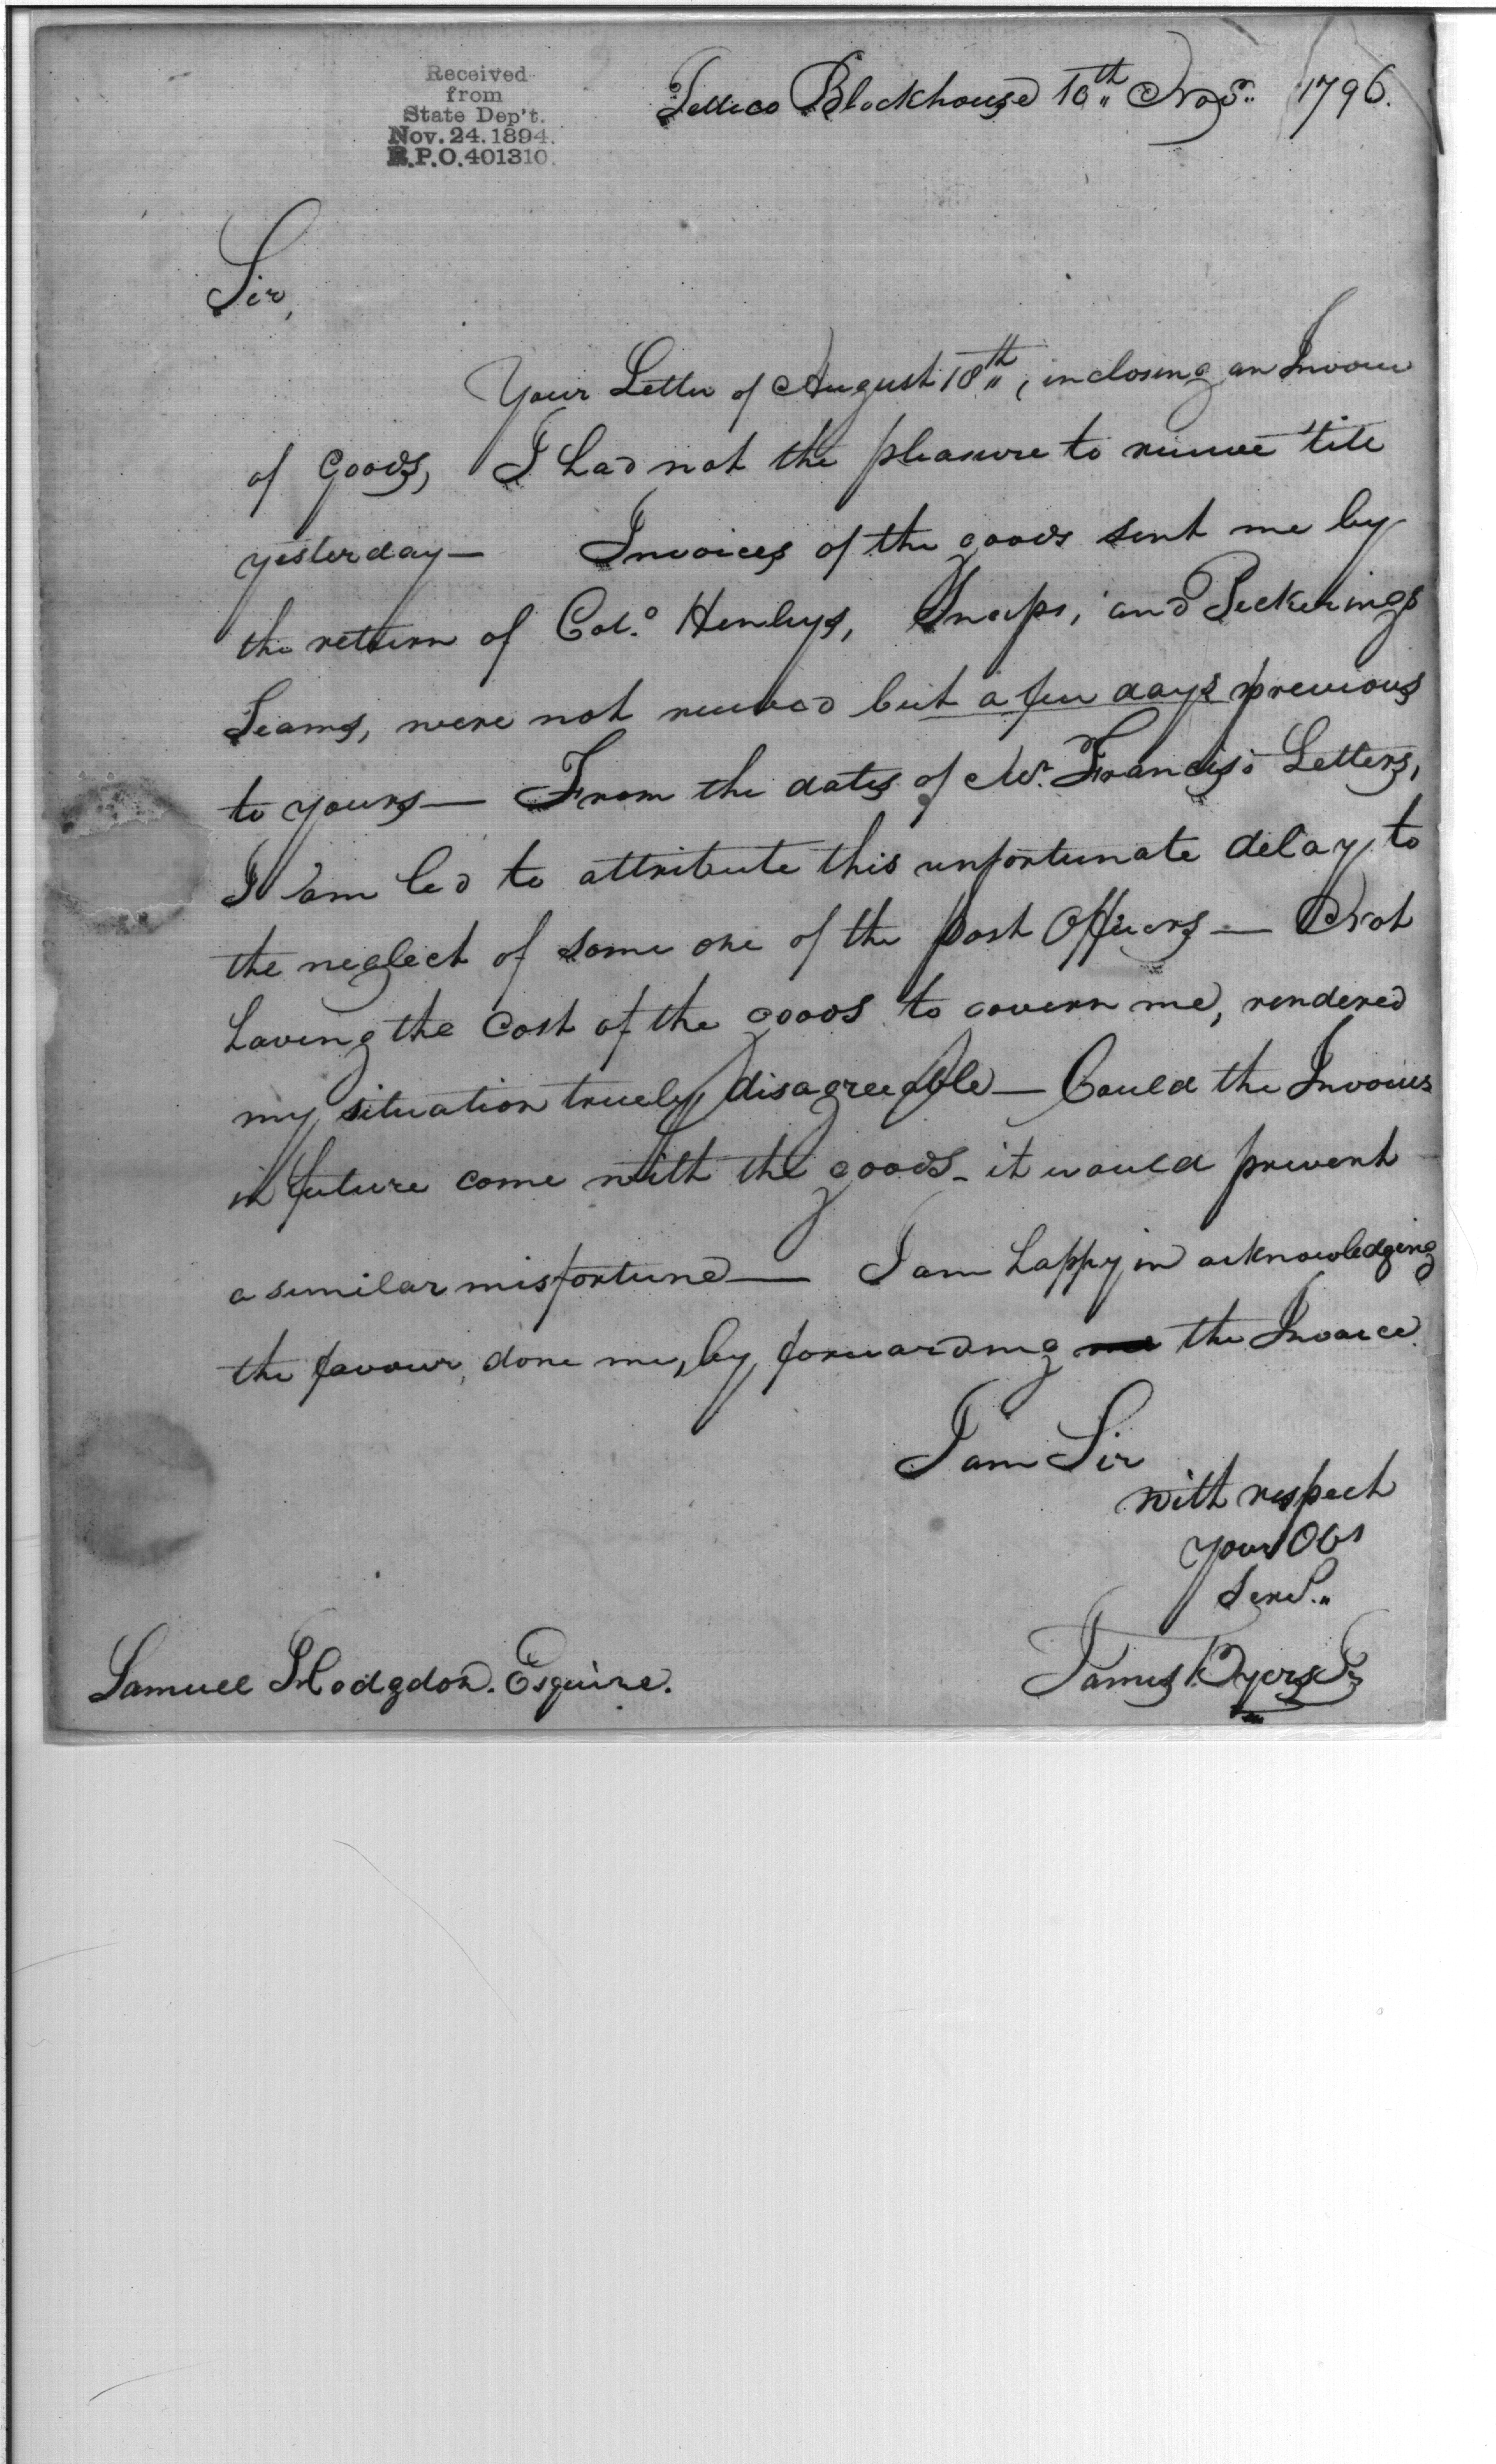 Received
from
State Dep't.
Nov. 24. 1894.
R.P.O. 401310.
Tellico Blockhouse 10th Nov. 1796.
Sir,
Your Letter of August 18th, inclosing an Invoice
of Goods, I had not the pleasure to receive 'till
yesterday — Invoices of the goods sent me by
the return of Col.o Henleys, Sneeps, and Peckerings
Teams, were not received but a few days previous
to yours — From the dates of Mr. Francis's Letters,
I am led to attribute this unfortunate delay to
the neglect of some one of the post Officers — Not
having the Cost of the goods to govern me, rendered
my situation truely disagreeable — Could the Invoices
in future come with the goods - it would prevent
a similar misfortune — I am happy in acknowledging
the favour, done me, by forwarding the Invoice.
I am Sir
with respect
your Obt
Servt.
Samuel Hodgdon. Esquire.
James Byers Jr